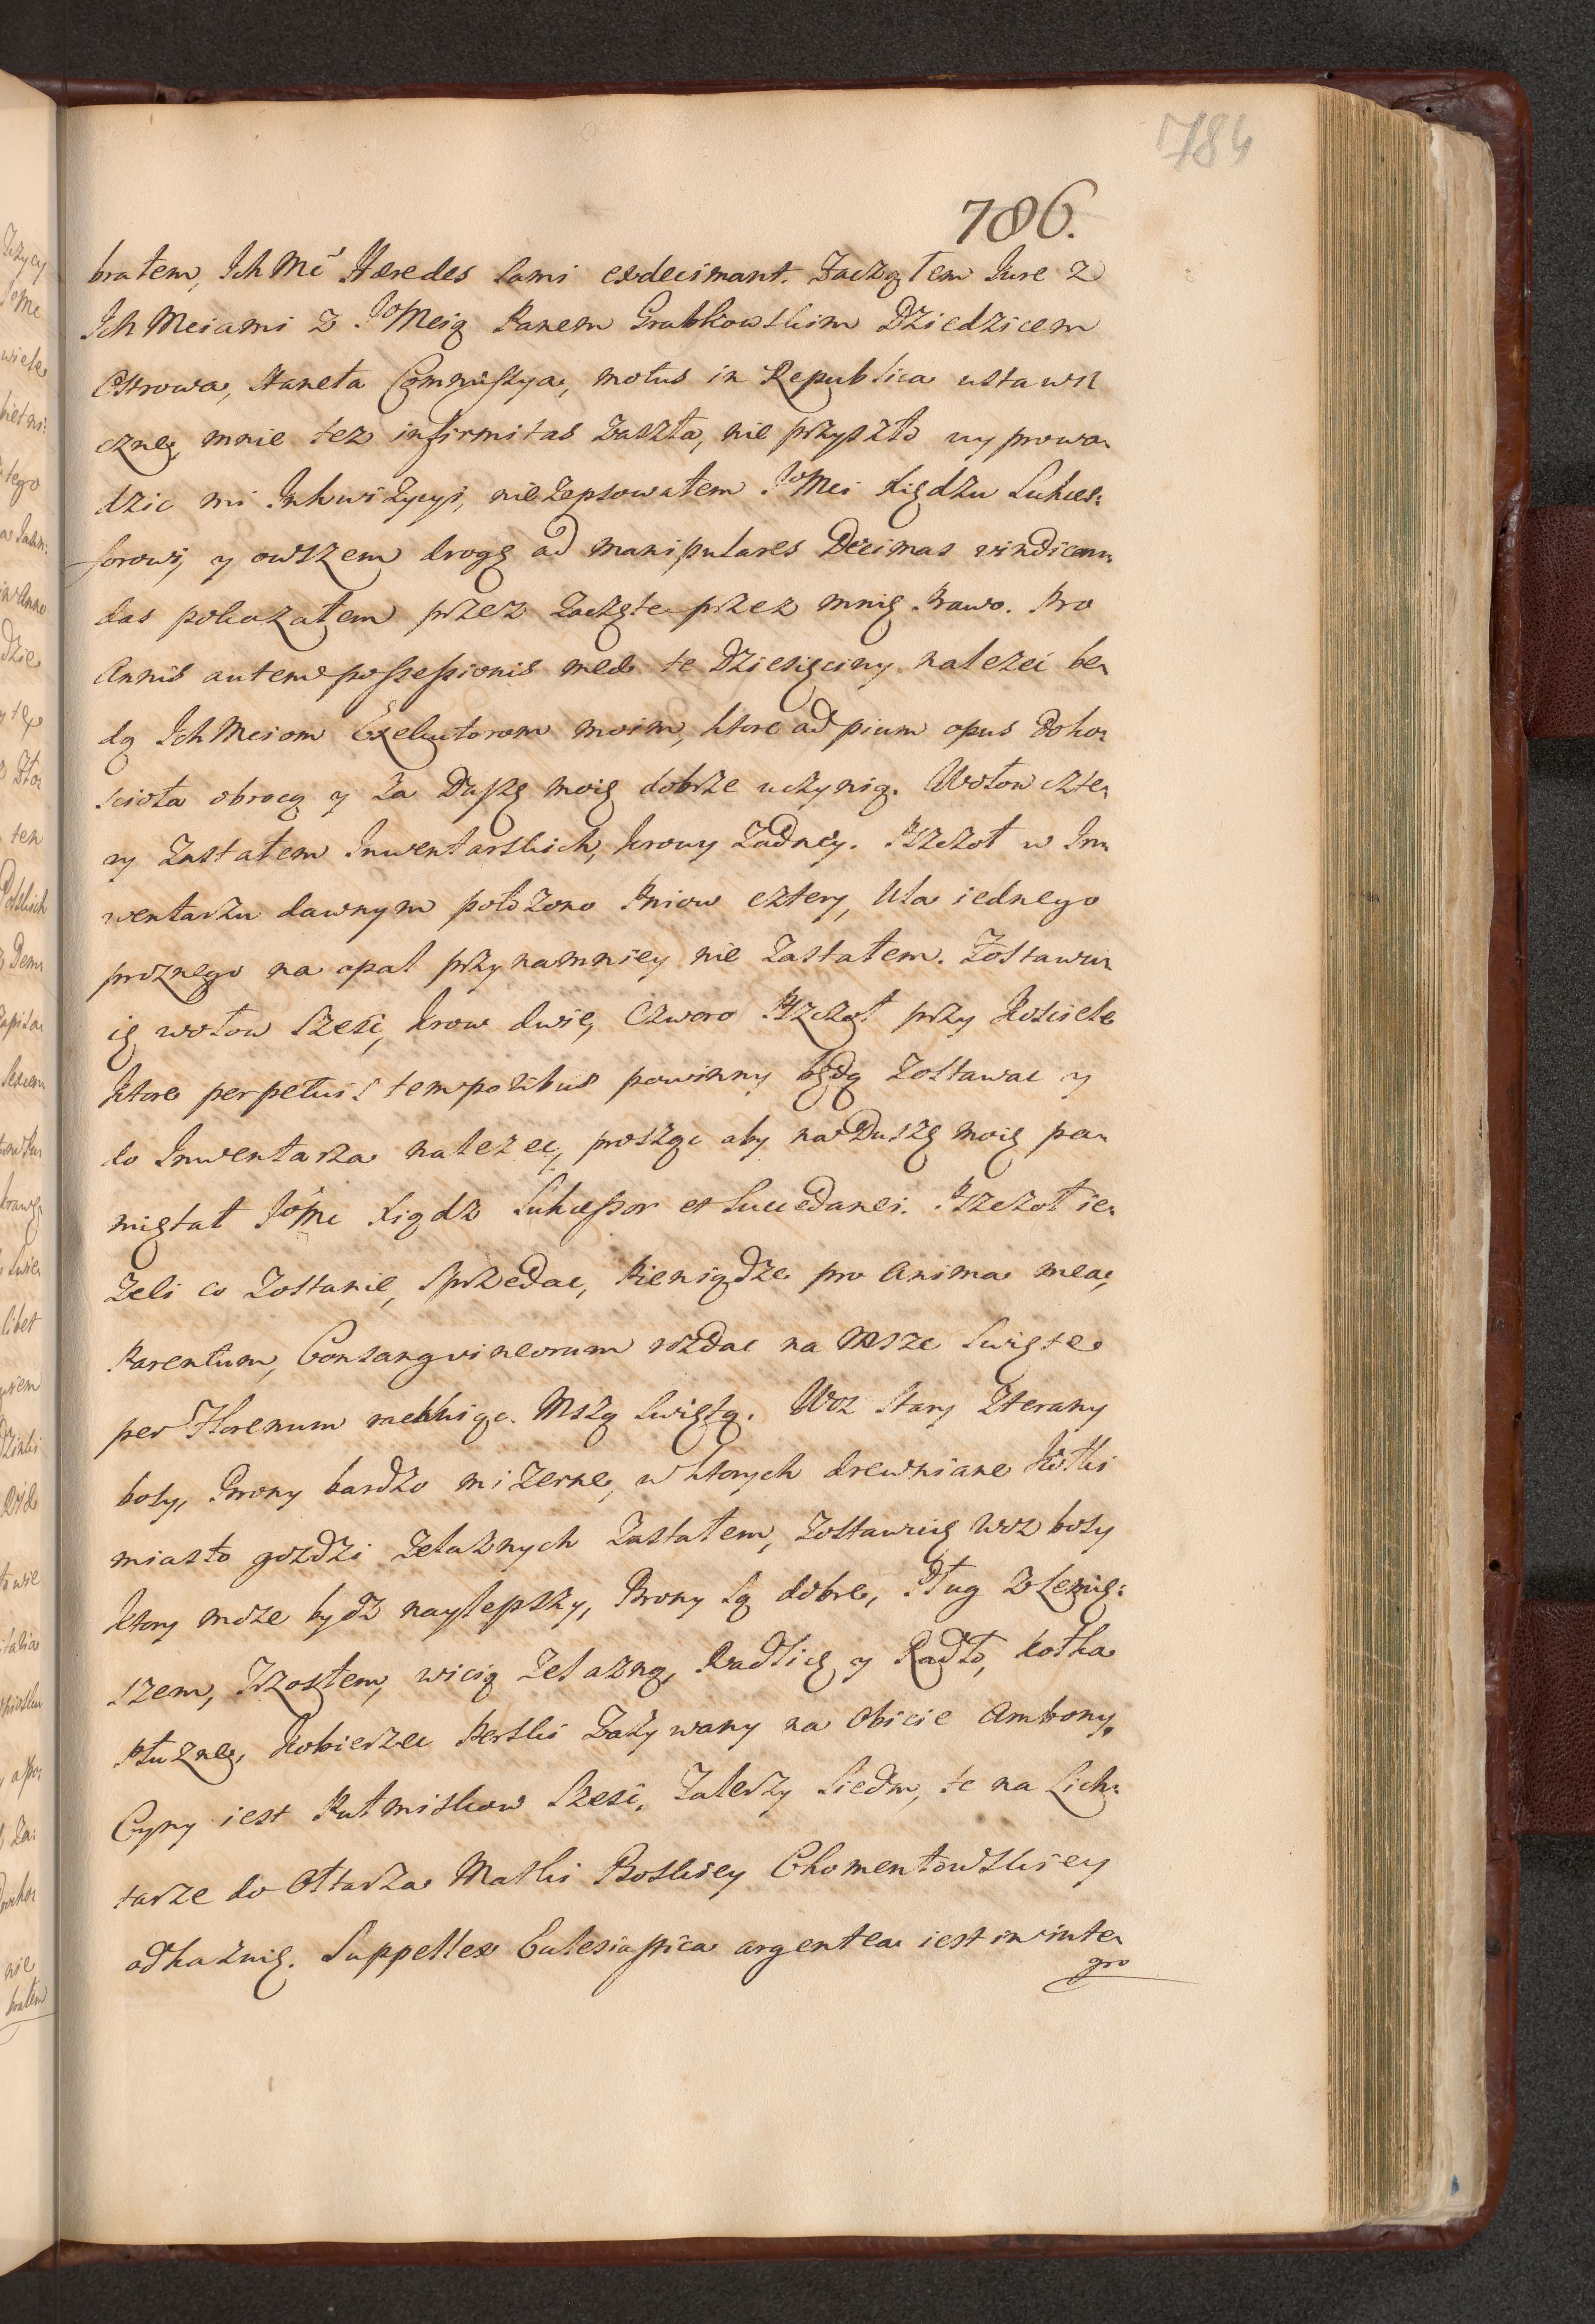 784
786.
bratem, Ich Mć Hæredes sami exdecimant. Zacząłem Iure z
Ich Mciami z JoMcią Panem Grabkowskim Dziedzicem
Ostrowa, staneła Commissya, motus in Republica ustawi-
czne, mnie tez infirmitas zaszła, nie przyszło wyprowa-
dzic mi Inkwizycyi, nie zepsowałem JoMci Xiędzu Sukces:
sorowi, y owszem drogę ad manipulares Decimas vindican-
das pokazałem przez zaczęte przez mnię Prawo. Pro
Annis autem possessionis meæ te Dziesięciny nalezeć bę-
dą Ich Mciom Exekutorom moim, ktore ad pium opus do ko-
scioła obrocą y za Duszę moię dobrze uczynią. Wołow czte-
ry zastałem Inwentarskich, krowy Zadney. Pszczoł w In-
wentarzu dawnym połozono Pniow cztery, Ula iednego
proznego na opał przynamniey nie zastałem. Zostawu-
ię wołow szesć, krow dwie, Czworo Pszczoł przy Kosciele
ktore perpetuis temporibus powinny będą zostawac y
do Inwentarza nalezec, proszęc aby na Duszę moię pa-
miętał JoMć Xiądz Sukcessor et Succedanei. Pszczoł ie-
zeli co zostanie, sprzedac, Pieniądze pro Anima mea,
Parentum, Consangvineorum rozdac na Msze Swięte
per Florenum rachuiąc Mszą Swiętą. Woz stary sterany
bosy, Brony bardzo mizerne, w ktorych drewniane Kołki
miasto gozdzi zelaznych zastałem, zostawuię woz bosy
ktory moze bydz naylepszy, Brony są dobre, Pług z lemię:
szem, Trzosłem, wicią zelazną, Radlicę y Radło, kołka
Płuzne, Kobierzec Perski Zazywany na Obicie Ambony,
Cyny iest Putmiskow szesć, Talerzy siedm, te na Lich-
tarze do Ołtarza Matki Boskiey Chomentowskiey
odkaznię. Suppellex Eclesiastica argentea iest in inte-
gro